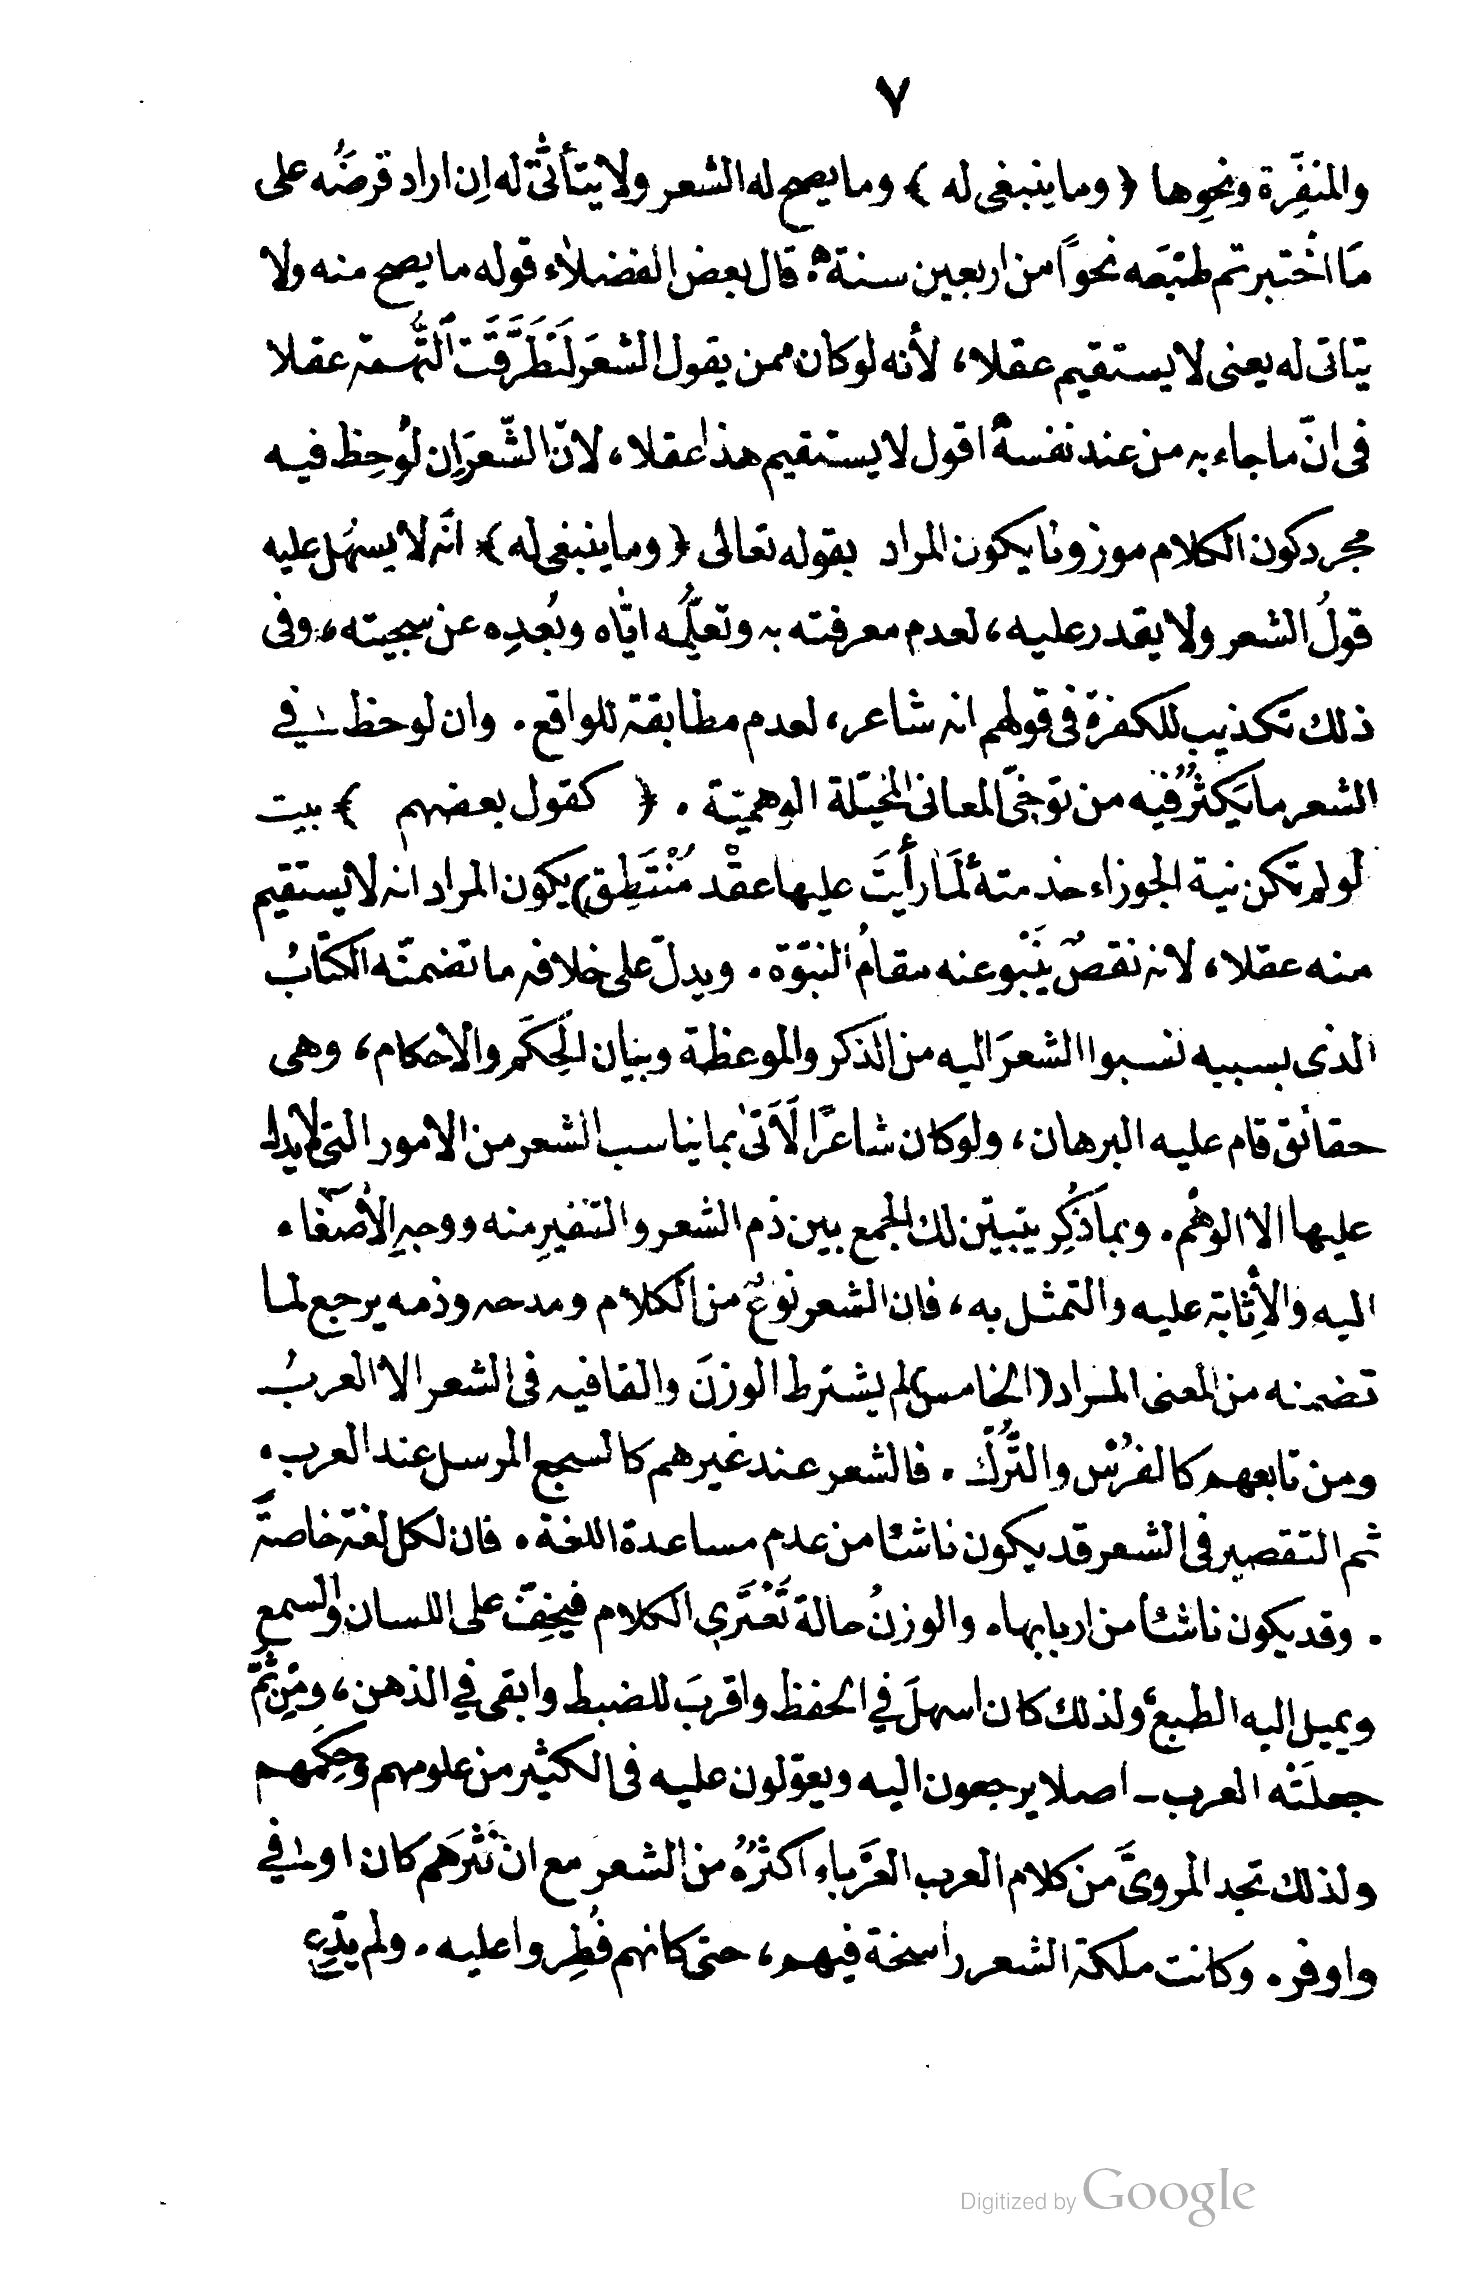 ٧
والمنفِّرة ونحوِها ﴿ وما ينبغى له ﴾ وما يصح له الشعر ولا يتأتّى له اِن اراد قرضَه على
مَا اخْتبرتم طبْعَه نحواً من اربعين سنة ۀ قال بعض الفضلاء قوله ما يصح منه ولا
يتاتى له يعنى لا يستقيم عقلا، لأنه لو كان ممن يقول الشعرَ لَتَطَرَّقَت التُّهمة عقلا
فى انّ ما جاء به من عند نفسه اقول لا يستقيم هذا عقلا، لانّ الشّعرَ اِن لُوحِظ فيه
مجرد كون الكلام موزونا يكون المراد بقوله تعالى ﴿ وما ينبغى له ﴾ انّه لا يسهُل عليه
قولُ الشعر ولا يقدر عليه، لعدم معرفته به وتعلُّمه ايّاه وبُعدِه عن سجيته، وفى
ذلك تكذيب للكفرة فى قولهم انه شاعر، لعدم مطابقة للواقع. وان لوحظ فے
الشعر ما يَكثُرُ فيه من توخّى المعانى المخيّلة الوهميّة. ﴿ كقول بعضهم ﴾ بيت
لو لم تكن نية الجوزاء خدمته لَمَا رأيتَ عليها عقْد مُنْتَطِق) يكون المراد انه لا يستقيم
منه عقلا، لانه نقصٌ يَنْبو عنه مقامُ النبوّة. ويدلّ على خلافه ما تضمنّه الكتابُ
الذى بسببه نسبوا الشعرَ اليه من الذكر والموعظة وبيان الحِكَم والاحكام، وهى
حقائق قام عليه البرهان، ولو كان شاعرًا لَاَتىٰ بما يناسب الشعر من الامور التى لا يدل
عليها الا الوهْم. وبما ذُكِر يتبيّن لك الجمع بين ذم الشعر والتنفيرِ منه ووجهِ الأصغاء
اليه والأِثابة عليه والتمثل به، فان الشعر نوعٌ من الكلام ومدحه وذمه يرجع لما
تضمنه من المعنى المراد (الخامس) لم يشترط الوزنَ والقافيه فى الشعر الا العربُ
ومن تابعهم كالفرُس والتُّرك. فالشعر عند غيرهم كالسجع المرسل عند العرب.
ثم التقصير فى الشعر قد يكون ناشئا من عدم مساعدة اللغة. فان لكل لغة خاصةً
. وقد يكون ناشئا من اربابها. والوزنُ حالة تَعْتَرى الكلام فيخِفّ على اللسان والسمع
ويميل اليه الطبعُ ولذلك كان اسهلَ في الحفظ واقربَ للضبط وابقى في الذهن، ومِن ثَمَّ
جعلَتْه العرب ـ اصلا يرجعون اليه ويعوّلون عليه فى الكثير من علومهم وحِكَمهم
ولذلك تجد المروىَّ من كلام العرب العَرْباء اكثرُهُ من الشعر مع ان نَثْرَهم كان اولى في
واوفر. وكانت ملكة الشعر راسخة فيهم، حتى كانهم فُطِروا عليه. ولم يدّعِ
Digitized by Google